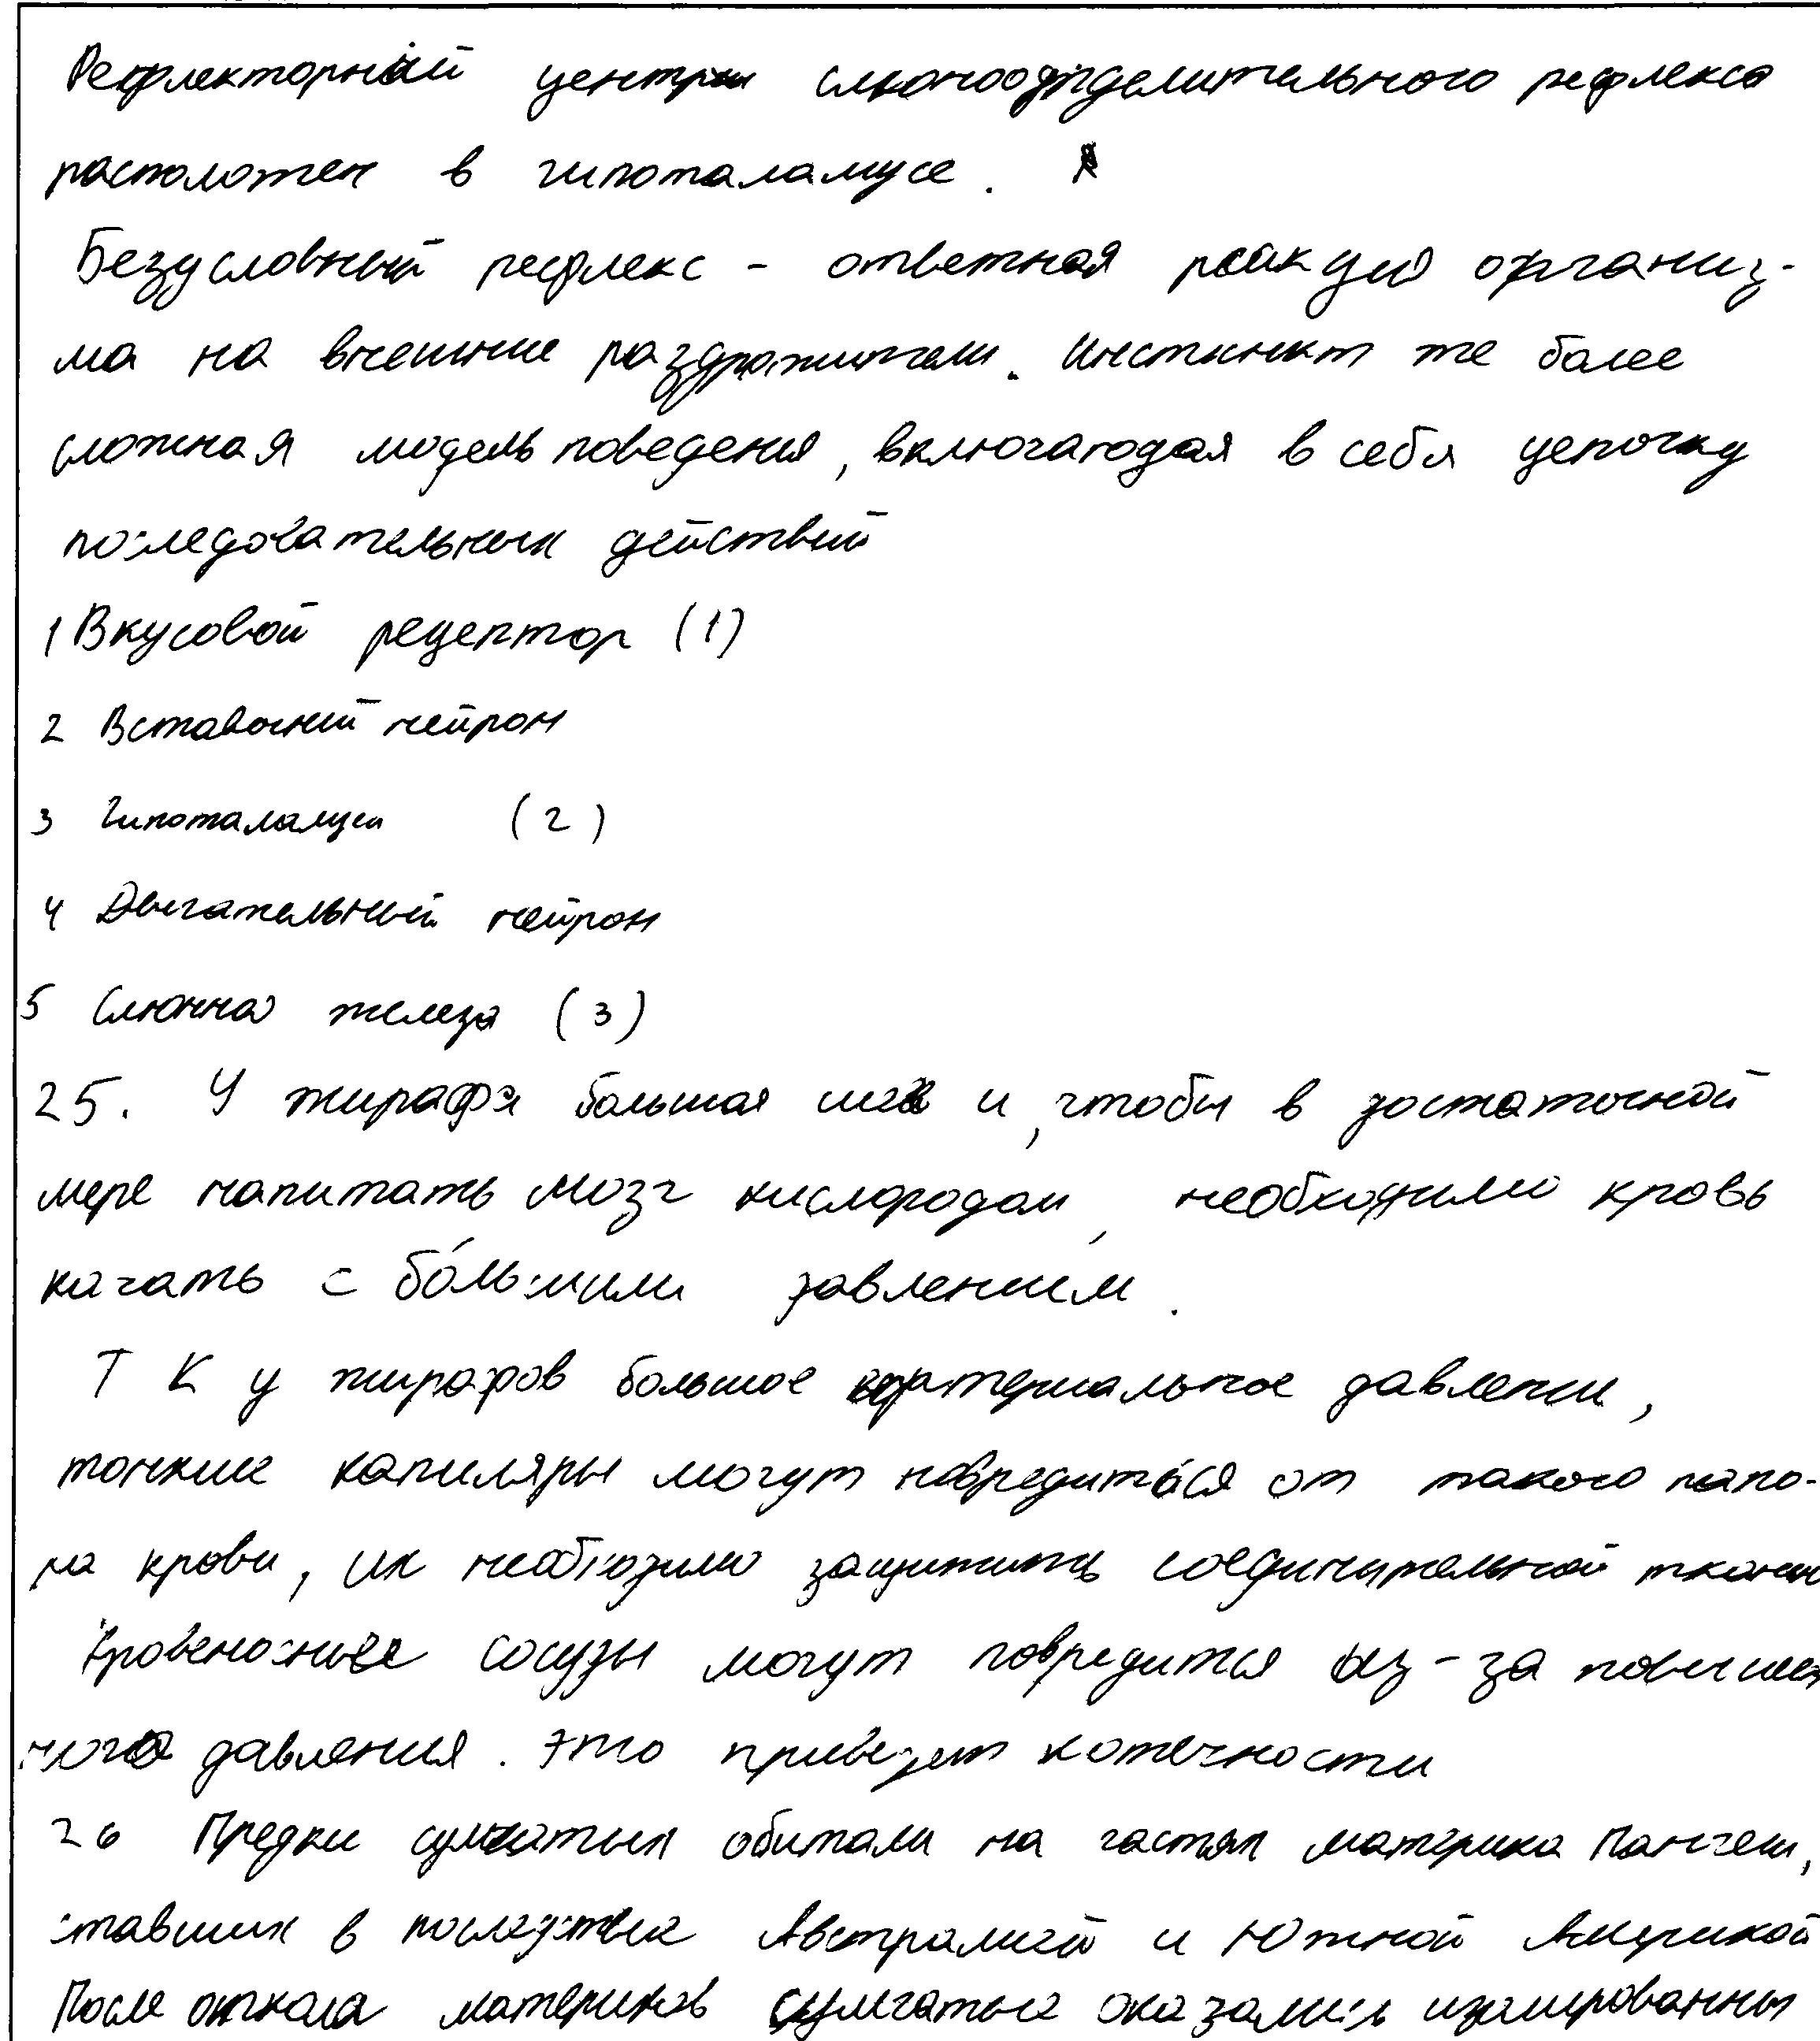 Рефлекторный центр слюноотделительного рефлекса
расположен в гипоталамусе.
Безусловный рефлекс - ответная реакция организ-
ма на внешние раздражители. Инстинкт же более
сложная модель поведения, включающая в себя цепочку
последовательных действий
1 Вкусовой рецептор (1)
2 Вставочный нейрон
3 Гипоталамус (2)
4 Двигательный нейрон
5 Слюнная железа (3)
25. У жирафа большая шея и, чтобы в достаточной
мере напитать мозг кислородом, необходимо кровь
качать с бо́льшим давлением.
Т К у жирафов большое артериальное давлени,
тонкие капиляры могут повредиться от такого напо-
ра крови, их необходимо защитить соединительной тканью
Кровеносные сосуды могут повредится из-за повышен
ного давления. Это приведет к отечности
26 Предки сумчатых обитали на частях материка Пангеи,
ставших в последствие Австралией и Южной Америкой
После откола материков сумчатые оказались изолированны